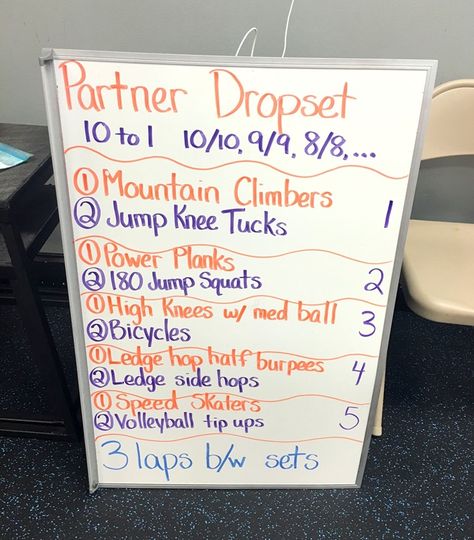 Partner Dropset
10 to 1 10/10, 9/9, 8/8, ...
① Mountain Climbers
② Jump Knee Tucks 1
① Power Planks
② 180 Jump Squats 2
① High Knees w/ med ball 3
② Bicycles
① Ledge hop half burpees 4
② Ledge side hops
① Speed Skaters
② Volleyball tip ups 5
3 laps b/w sets